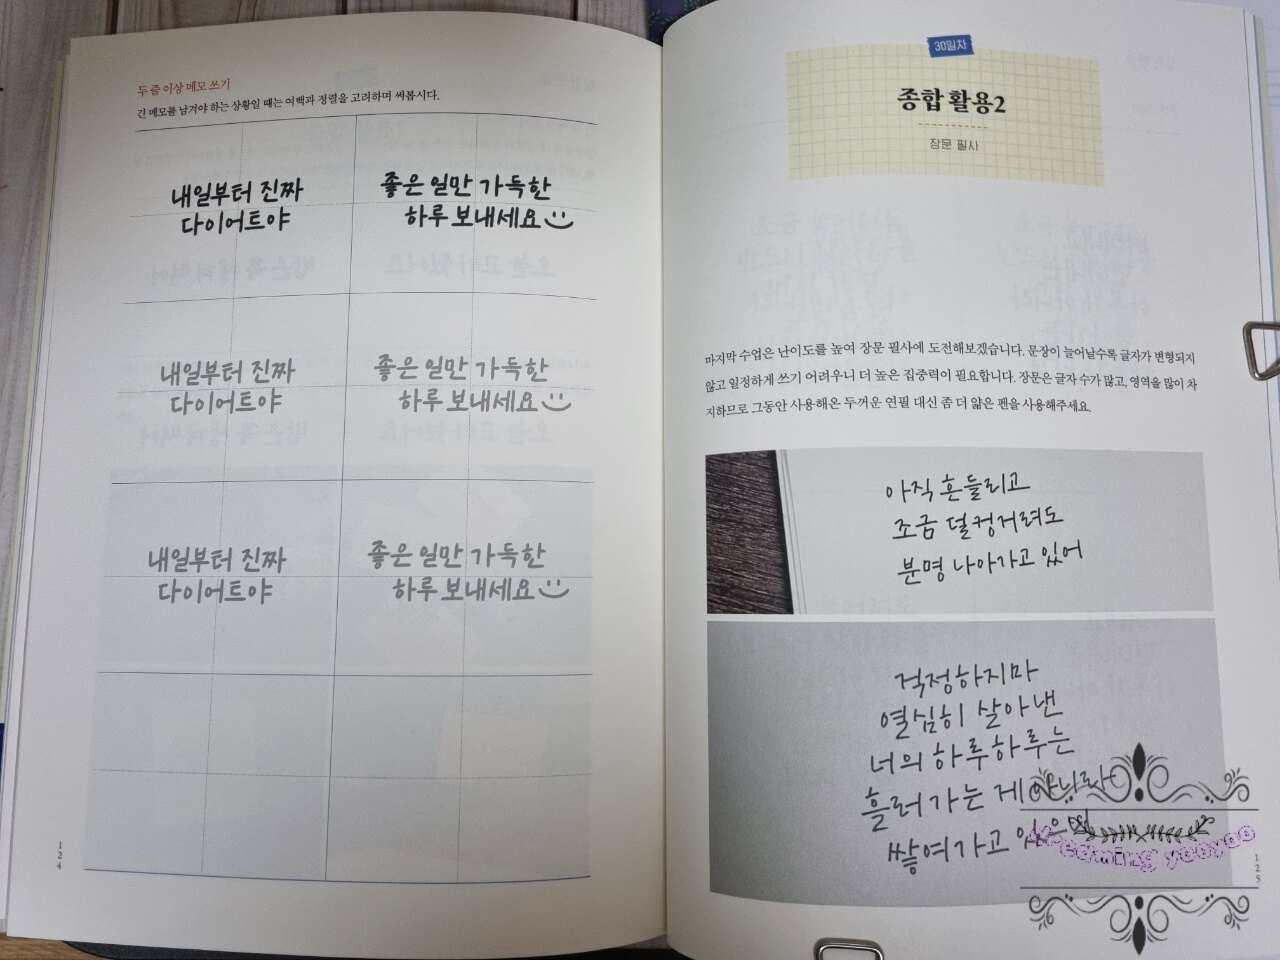 두 줄 이상 메모 쓰기
긴 메모를 남겨야 하는 상황일 때는 여백과 정렬을 고려하며 써봅시다.
내일부터 진짜
다이어트야
좋은 일만 가득한
하루 보내세요
내일부터 진짜
다이어트야
좋은 일만 가득한
하루 보내세요
내일부터 진짜
다이어트야
좋은 일만 가득한
하루 보내세요
124
30일차
종합 활용2
장문 필사
마지막 수업은 난이도를 높여 장문 필사에 도전해보겠습니다. 문장이 늘어날수록 글자가 변형되지
않고 일정하게 쓰기 어려우니 더 높은 집중력이 필요합니다. 장문은 글자 수가 많고, 영역을 많이 차
지하므로 그동안 사용해온 두꺼운 연필 대신 좀 더 얇은 펜을 사용해주세요.
아직 흔들리고
조금 덜컹거려도
분명 나아가고 있어
걱정하지마
열심히 살아낸
너의 하루하루는
흘러가는 게 아니라
쌓여가고 있으
yooyoo
125